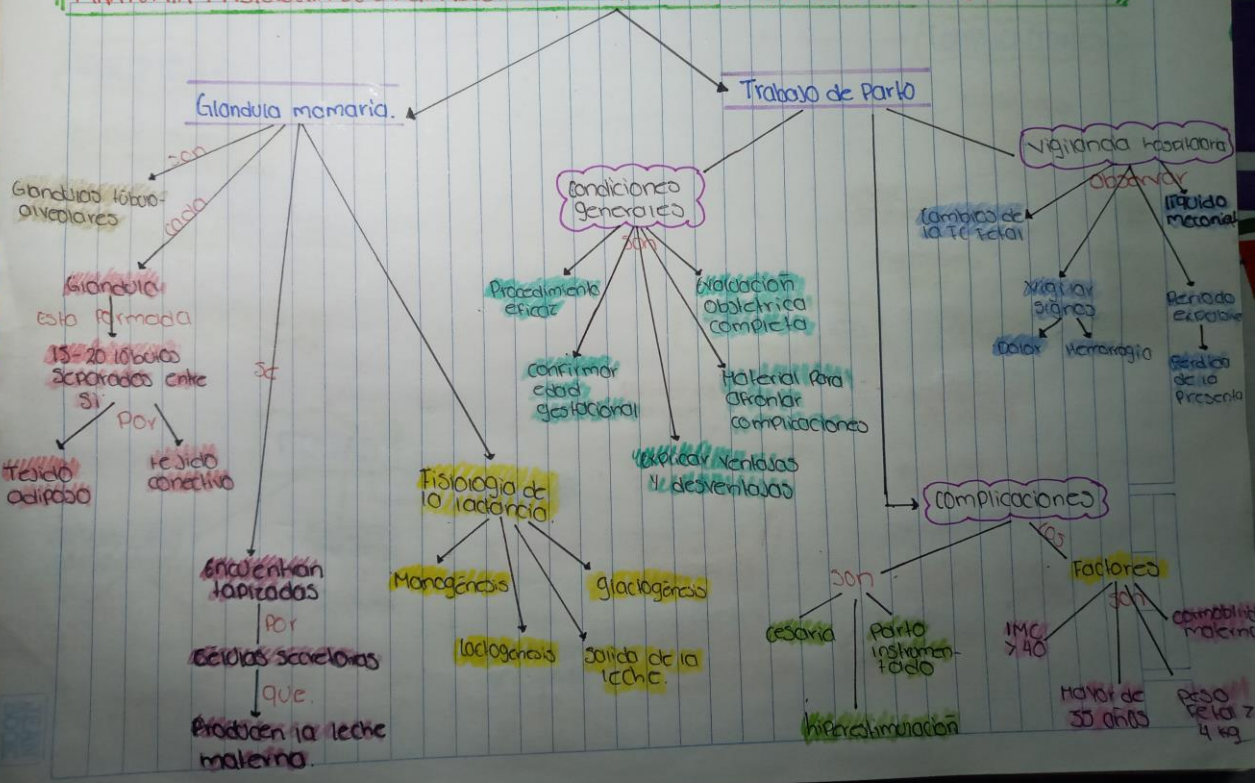 Glandula mamaria.
Trabajo de Parto
son
Glandulas tóbulo-
alveolares
cada
Glandula
Esta formada
15-20 lobulos
separados entre
si
por
tejido
adiposo
tejido
conectivo
se
Encuentran
tapizadas
por
Celulas secretoras
que.
Producen la leche
materna.
Fisiologia de
la lactancia.
Mamogénesis
lactogénesis
salida de la
leche.
glactogénesis
Condiciones
generales
son
Procedimiento
eficaz
confirmar
edad
gestacional
explicar ventajas
y desventajas
Material para
afrontar
complicaciones
Evaluación
obstetrica
completa
vigilancia
observar
Cambios de
la FC fetal
vigilar
signos
Dolor
Hemorragia
Periodo
Perdida
de la
Presenta
liquido
meconial
Complicaciones
son
cesaria
hiperestimulación
Parto
instrumen-
tado
Factores
son
IMC
>40
Mayor de
35 años
Peso
Fetal >
4 kg